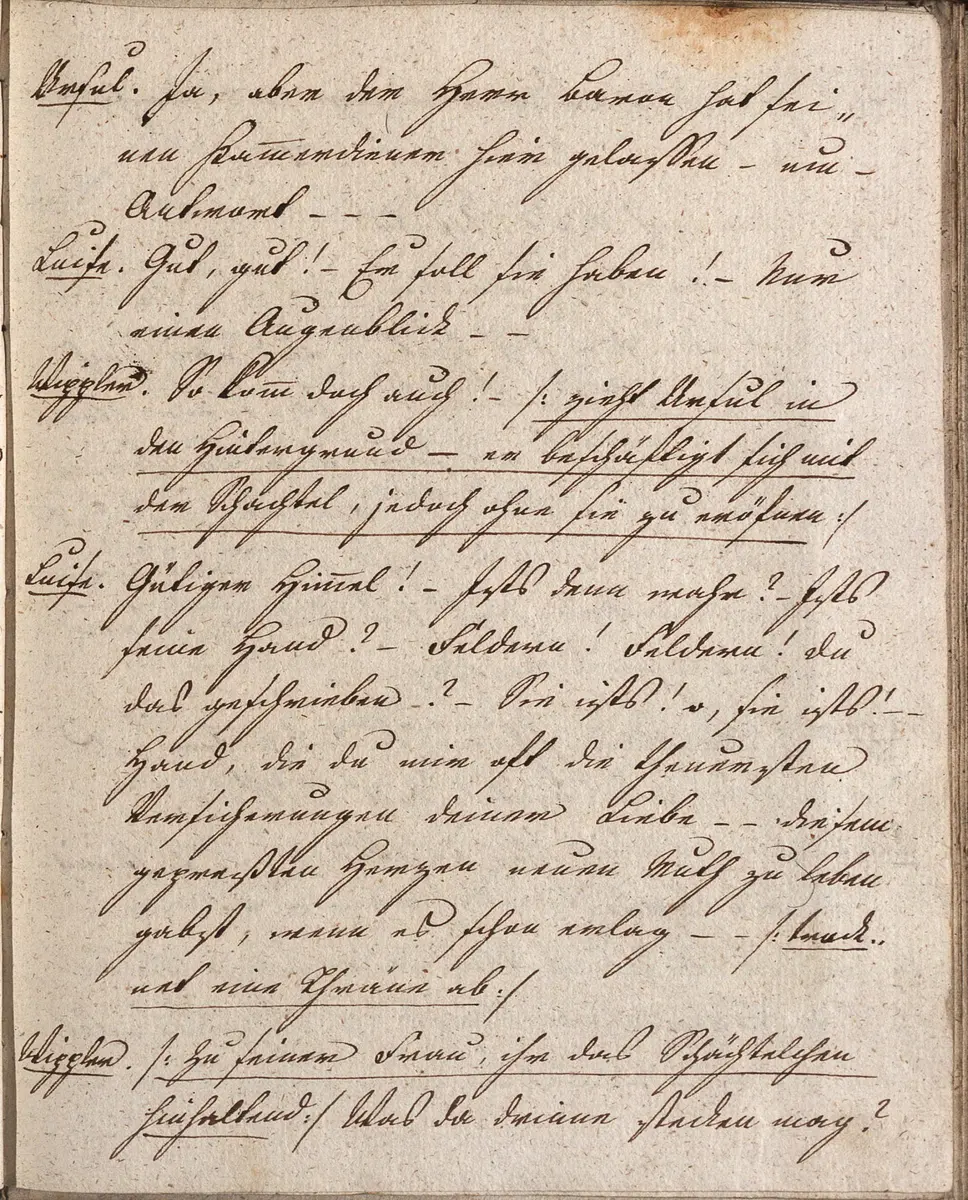 Ursul. Ja, aber der Herr Baron hat sei„
nen Kam̅erdiener hier gelassen – um –
Antwort – – –
Luise. Gut, gut! – Er soll sie haben! – Nur
einen Augenblick – –
Wippler. So kom̅ doch auch! – /: zieht Ursul in
den Hintergrund – er beschäftigt sich mit
der Schachtel, jedoch ohne sie zu eröfnen :/
Luise. Gütiger Him̅el! – Ists denn wahr? – Ists
seine Hand? – Feldern! Feldern! du
das geschrieben –? – Sie ists! o, sie ists! – –
Hand, die du mir oft die theuersten
Versicherungen deiner Liebe – – diesem
gepreßten Herzen neuen Muth zu leben
gabst, wenn es schon erlag – – /: trock„
net eine Thräne ab :/
Wippler. /: Zu seiner Frau, ihr das Schächtelchen
hinhaltend :/ Was da drinne stecken mag?